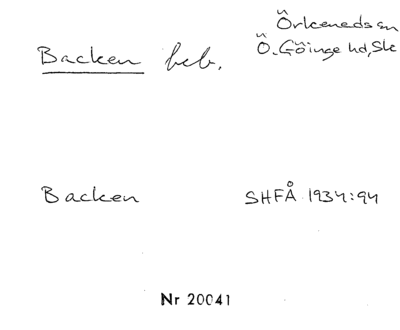 Örkeneds sn
Backen beb. Ö. Göinge hd, Sk
Backen SHFÅ 1934:94
Nr 20041